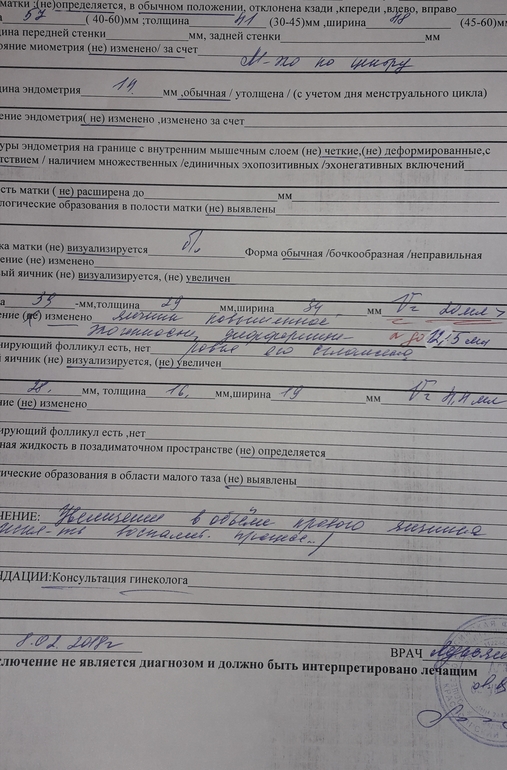 матки ;(не)определяется, в обычном положении, отклонена кзади ,кпереди ,влево, вправо
57 ( 40-60)мм ;толщина 41 (30-45)мм ,ширина 48 (45-60)мм
ина передней стенки мм, задней стенки мм
ояние миометрия (не) изменено/ за счет
М-хо по циклу
щина эндометрия 14 мм ,обычная / утолщена / (с учетом дня менструального цикла)
ение эндометрия( не) изменено ,изменено за счет
уры эндометрия на границе с внутренним мышечным слоем (не) четкие,(не) деформированные,с
тствием / наличием множественных /единичных эхопозитивных /эхонегативных включений
сть матки ( не) расширена до мм
логические образования в полости матки (не) выявлены
ка матки (не) визуализируется Форма обычная /бочкообразная /неправильная
ение (не) изменено
вый яичник (не) визуализируется, (не) увеличен
а 39 -мм,толщина 29 мм,ширина 34 мм V= 20 мл >
ение (не) изменено яичник повышенной
эхогенности, до 12,5 мл
нирующий фолликул есть, нет
й яичник (не) визуализируется, (не) увеличен
28. мм, толщина 16, мм,ширина 19 мм V=
ние (не) изменено
ирующий фолликул есть ,нет
ная жидкость в позадиматочном пространстве (не) определяется
гические образования в области малого таза (не) выявлены
ЧЕНИЕ: Увеличение в объёме правого яичника
воспалит. процесс
НДАЦИИ:Консультация гинеколога
8.02.2018г
ВРАЧ
ключение не является диагнозом и должно быть интерпретировано лечащим